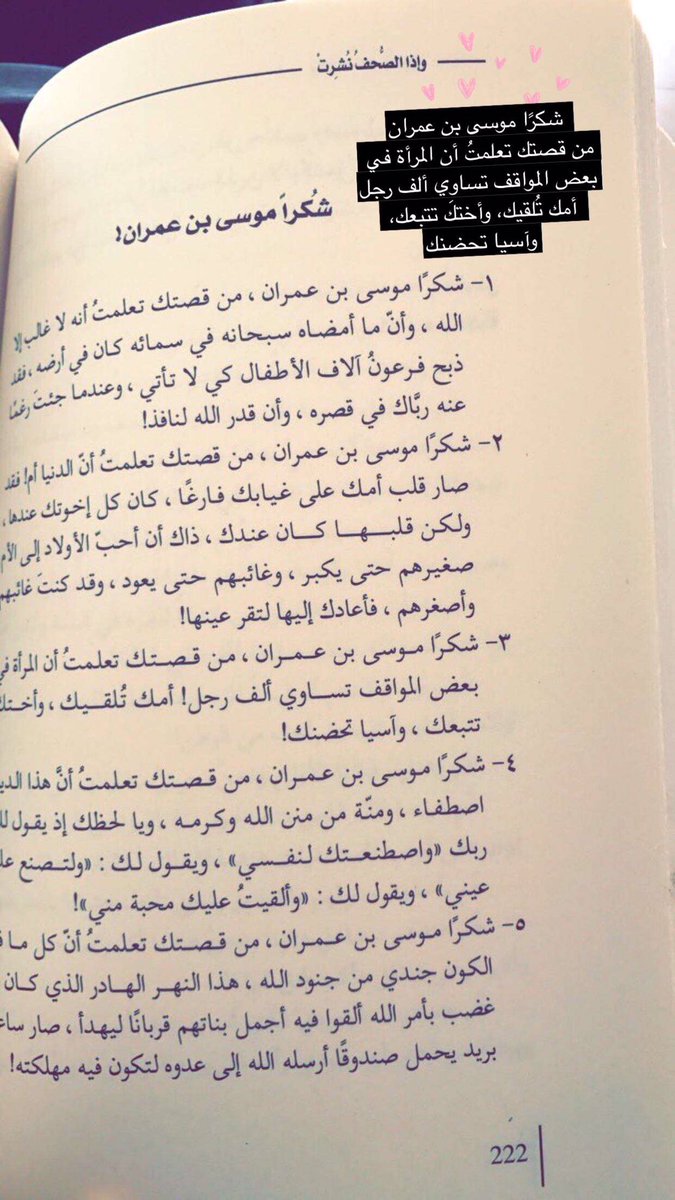 وإذا الصُّحفُ نُشِرتْ
شكرًا موسى بن عمران
من قصتك تعلمتُ أن المرأة في
بعض المواقف تساوي ألف رجل
أمك تُلقيك، وأختكَ تتبعك،
وآسيا تحضنك
شُكراً موسى بن عمران!
١- شكرًا موسى بن عمران ، من قصتك تعلمتُ أنه لا غالب إلا
الله ، وأنّ ما أمضاه سبحانه في سمائه كان في أرضه ، فقد
ذبح فرعونُ آلاف الأطفال كي لا تأتي ، وعندما جئتَ رغمًا
عنه ربَّاك في قصره ، وأن قدر الله لنافذ!
٢- شكرًا موسى بن عمران ، من قصتك تعلمتُ أنّ الدنيا أم! فقد
صار قلب أمك على غيابك فارغًا ، كان كل إخوتك عندها ،
ولكن قلبها كان عندك ، ذاك أن أحبّ الأولاد إلى الأم
صغيرهم حتى يكبر ، وغائبهم حتى يعود ، وقد كنتَ غائبهم
وأصغرهم ، فأعادك إليها لتقر عينها!
٣- شكرًا موسى بن عمران ، من قصتك تعلمتُ أن المرأة في
بعض المواقف تساوي ألف رجل! أمك تُلقيك ، وأختك
تتبعك ، وآسيا تحضنك!
٤- شكرًا موسى بن عمران ، من قصتك تعلمتُ أنَّ هذا
اصطفاء ، ومنّة من منن الله وكرمه ، ويا لحظك إذ يقول
ربك «واصطنعتك لنفسي» ، ويقول لك : «ولتصنع
عيني» ، ويقول لك : «وألقيتُ عليك محبة مني»!
٥- شكرًا موسى بن عمران ، من قصتك تعلمتُ أنّ كل ما
الكون جندي من جنود الله ، هذا النهر الهادر الذي كان
غضب بأمر الله ألقوا فيه أجمل بناتهم قربانًا ليهدأ ، صار
بريد يحمل صندوقًا أرسله الله إلى عدوه لتكون فيه مهلكته!
222